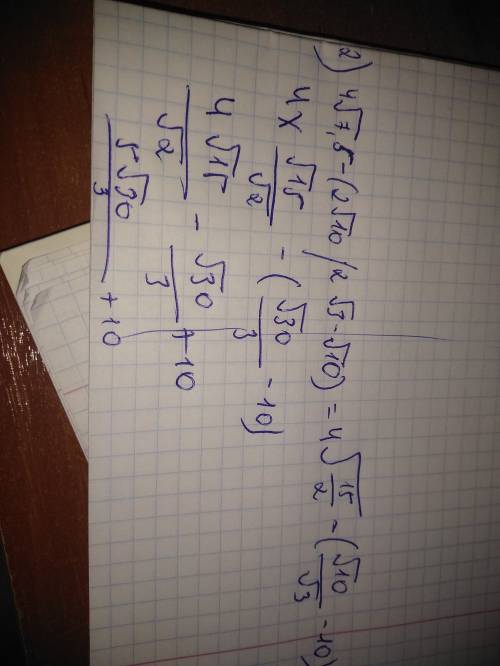 2) 4√7,5 - (2√10 / 2√3 - √10) = 4√15/2 - (√10/√3 - 10)
4 × √15/√2 - (√30/3 - 10)
4√15/√2 - √30/3 + 10
5√30/3 + 10